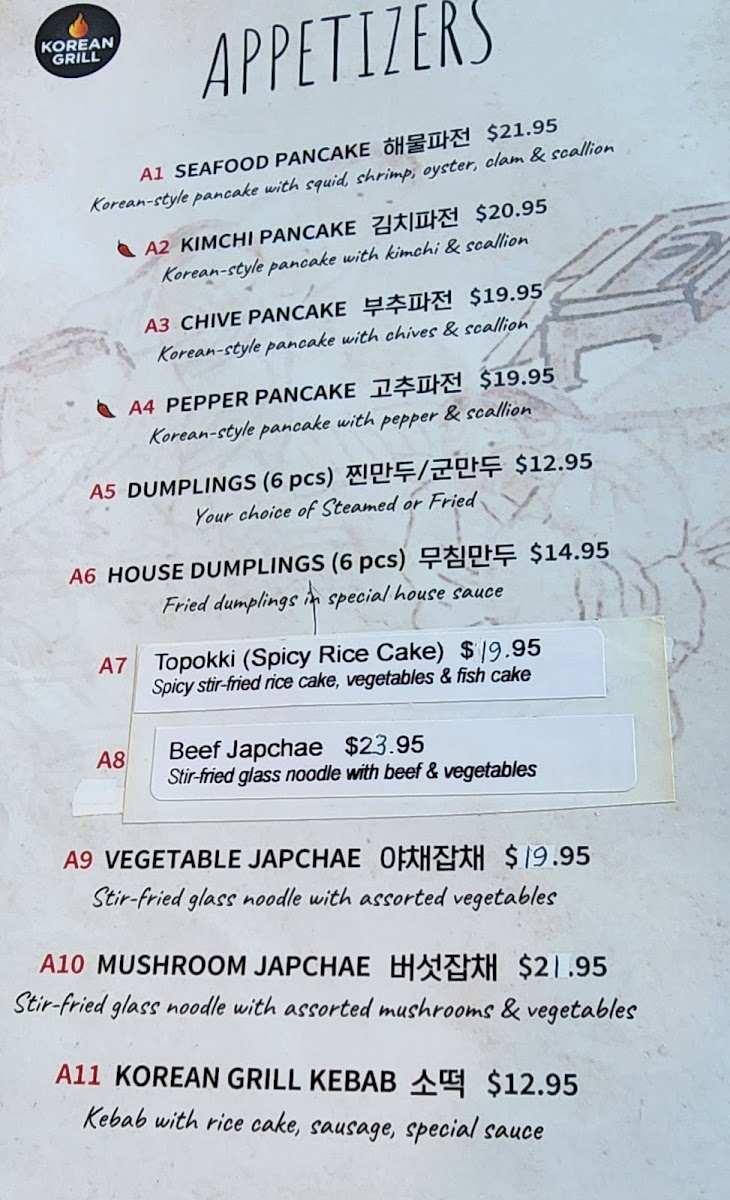 KOREAN
GRILL
APPETIZERS
A1 SEAFOOD PANCAKE 해물파전 $21.95
Korean-style pancake with squid, shrimp, oyster, clam & scallion
A2 KIMCHI PANCAKE 김치파전 $20.95
Korean-style pancake with kimchi & scallion
A3 CHIVE PANCAKE 부추파전 $19.95
Korean-style pancake with chives & scallion
A4 PEPPER PANCAKE 고추파전 $19.95
Korean-style pancake with pepper & scallion
A5 DUMPLINGS (6 pcs) 찐만두/군만두 $12.95
Your choice of Steamed or Fried
A6 HOUSE DUMPLINGS (6 pcs) 무침만두 $14.95
Fried dumplings in special house sauce
A7 Topokki (Spicy Rice Cake) $19.95
Spicy stir-fried rice cake, vegetables & fish cake
A8 Beef Japchae $23.95
Stir-fried glass noodle with beef & vegetables
A9 VEGETABLE JAPCHAE 야채잡채 $19.95
Stir-fried glass noodle with assorted vegetables
A10 MUSHROOM JAPCHAE 버섯잡채 $21.95
Stir-fried glass noodle with assorted mushrooms & vegetables
A11 KOREAN GRILL KEBAB 소떡 $12.95
Kebab with rice cake, sausage, special sauce